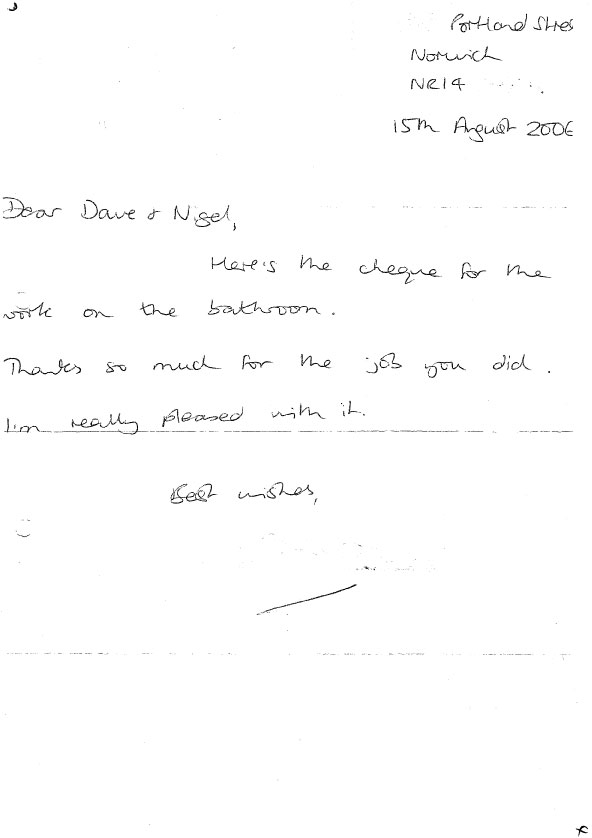 Portland Stree
Norwich
NR14
15th August 2006
Dear Dave & Nigel,
Here's the cheque for the
work on the bathroom.
Thanks so much for the job you did.
I'm really pleased with it.
Best wishes,